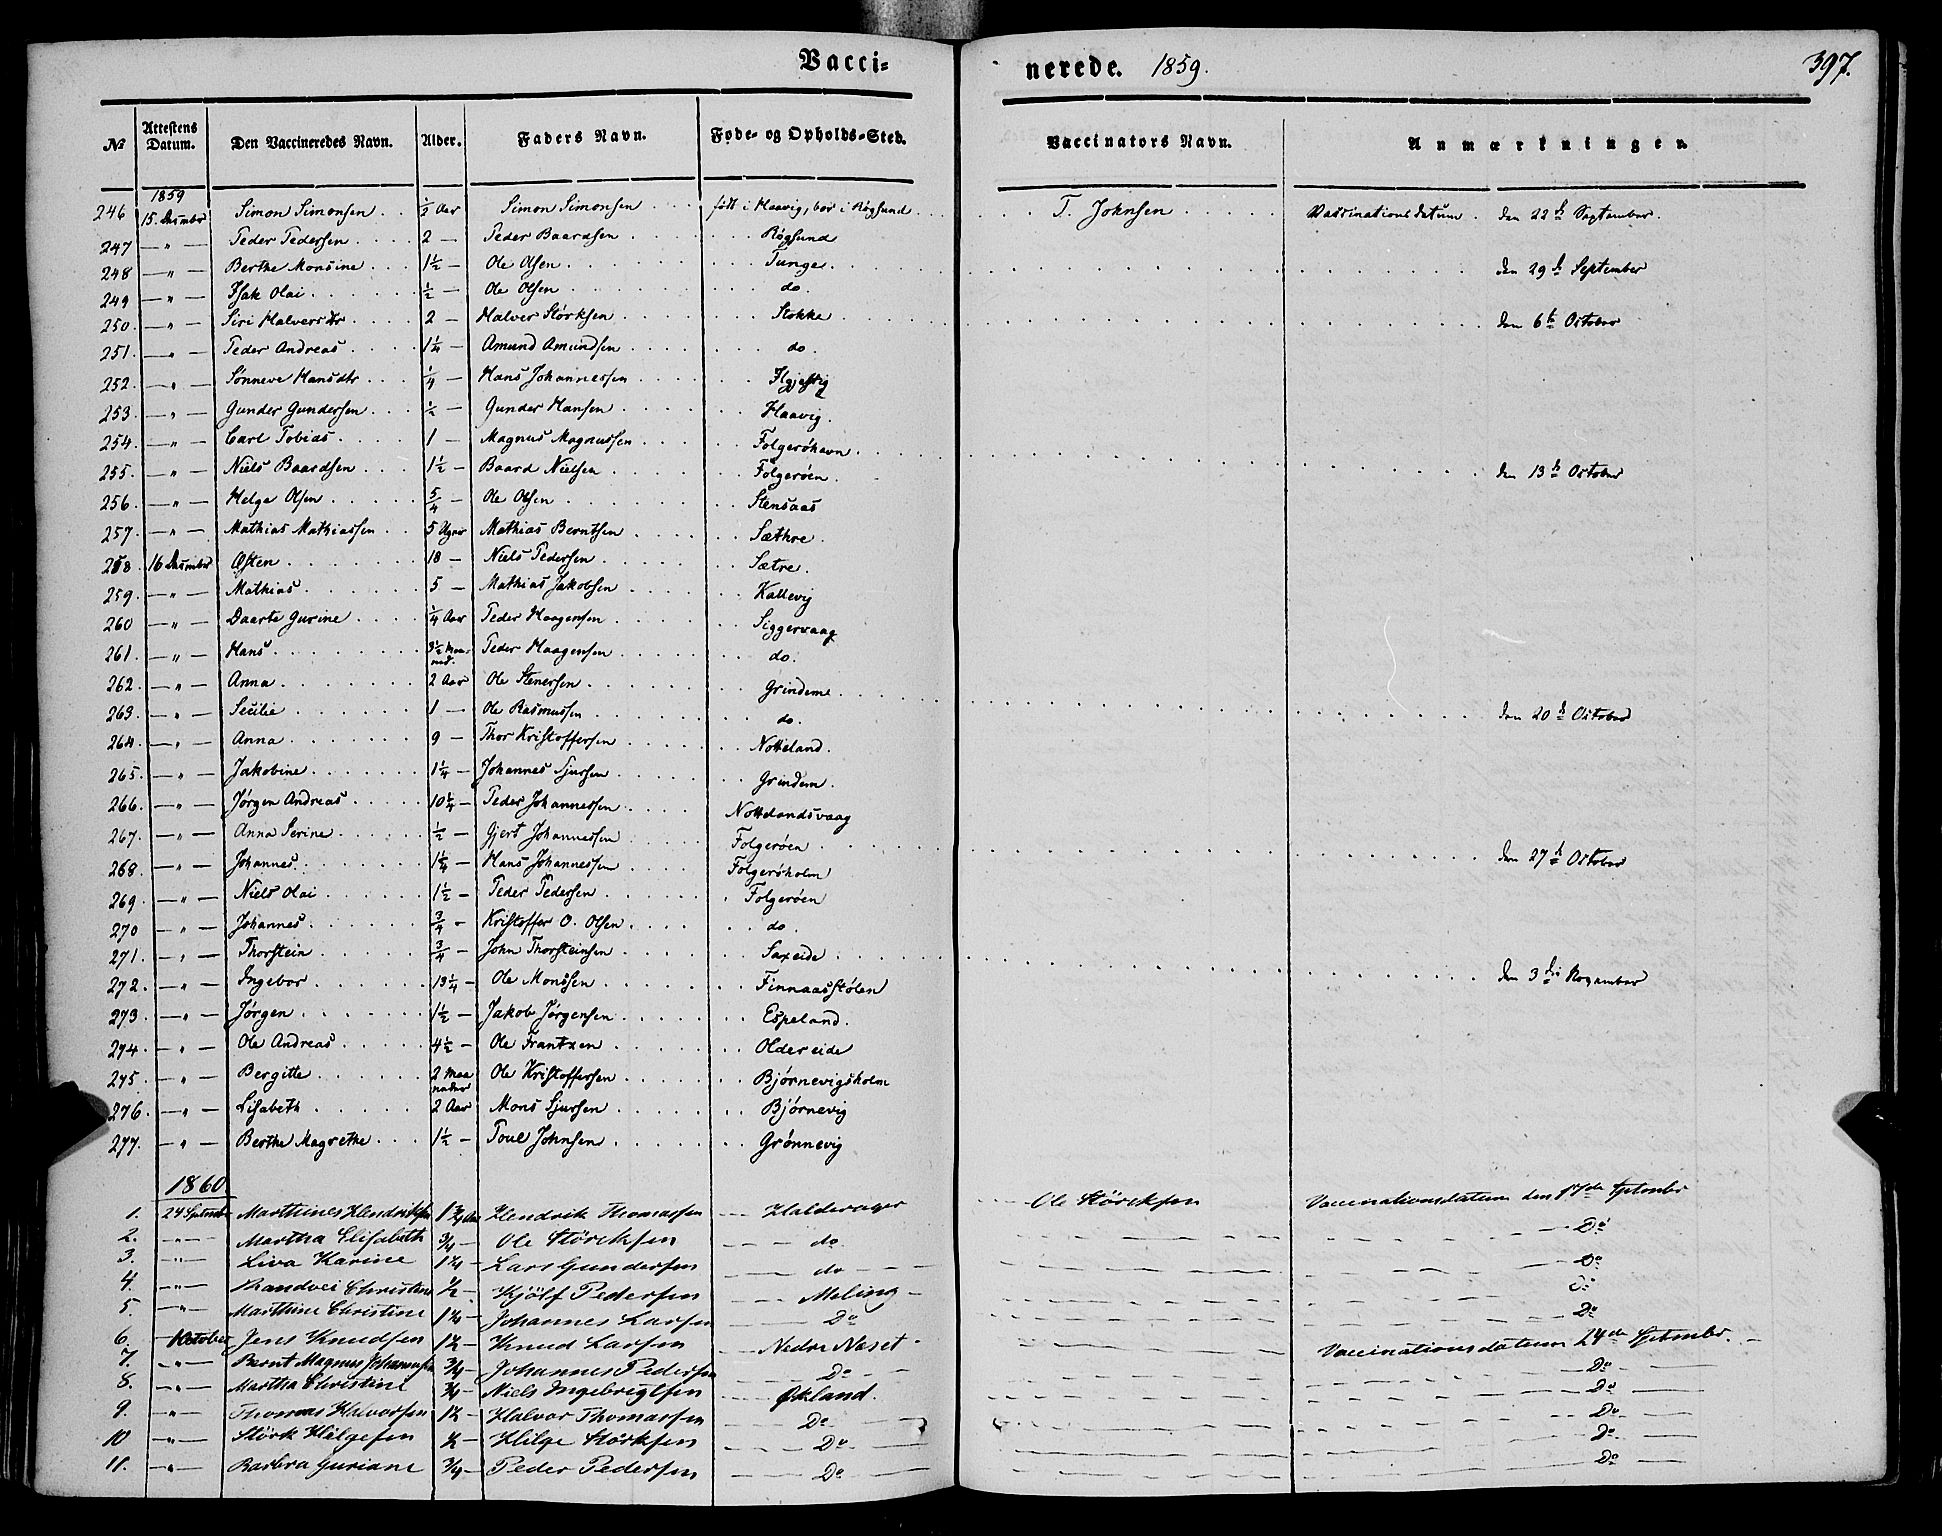 Vacci= nerede. 1859. 397.
№ Attestens Datum. Den Vaccineredes Navn. Alder. Faders Navn. Føde- og Opholds-Sted. Vaccinators Navn. Anmærkningen.
1859
246 15. December Simon Simonsen ½ Aar Simon Simonsen født i Haavig, bor i Røgsund T. Johnsen Vaccinationsdatum den 22de September.
247 —"— Peder Pedersen 2 — Peder Baardsen Røgsund
248 —"— Berthe Monsine 1½ — Ole Olsen Tunge den 29de September
249 —"— Isak Olai ½ — Ole Olsen do.
250. —"— Siri Halversdtr 2 — Halver Størksen Stokke den 6te October
251. —"— Peder Andreas 1¼ — Amund Amundsen do.
252. —"— Sønneve Hansdtr ¼ — Hans Johannessen
253. —"— Gunder Gundersen ½ — Gunder Hansen Haavig.
254. —"— Carl Tobias 1 — Magnus Magnussen Folgerøhavn
255. —"— Niels Baardsen 1½ — Baard Nielsen Folgerøen den 13de October
256. —"— Helge Olsen 5/4 — Ole Olsen Stensaas
257. —"— Mathias Mathiassen 5 Uger Mathias Berntsen Sæthre.
258. 16 December Østen 18 — Niels Pedersen Sætre.
259. —"— Mathias 5 — Mathias Jakobsen Kallevig
260 —"— Daarte Gurine ¼ Aar Peder Haagensen Siggervaag
261. —"— Hans 3½ Maaned. Peder Haagensen do.
262. —"— Anna 2 Aar Ole Stenersen Grindem
263. —"— Secilie 1 — Ole Rasmussen do. den 20de October
264. —"— Anna 9 — Thor Kristoffersen Notteland.
265. —"— Jakobine 1¼ — Johannes Sjursen Grindem.
266. —"— Jørgen Andreas 10¼ — Peder Johannessen Nottelandsvaag
267. —"— Anna Serine ½ — Gjert Johannessen Folgerøen
268. —"— Johannes 1¼ — Hans Johannessen Folgerøholm den 27de October
269. —"— Niels Olai 1½ — Peder Pedersen Folgerøen
270 —"— Johannes ¾ — Kristoffer O. Olsen do.
271. —"— Thorstein ¾ — John Thorsteinsen Saxeide
272. —"— Ingebor 13¼ — Ole Monssen Finnaasstølen den 3die November
273. —"— Jørgen 1½ — Jakob Jørgensen Espeland.
274. —"— Ole Andreas 4½ — Ole Frantzen Oldereide
275 —"— Bergitte 2 Maaneder Ole Kristoffersen Bjørnevigsholm
276. —"— Lisabeth 2 Aar Mons Sjursen Bjørnevig
277. —"— Berthe Magrethe 1½ — Poul Johnsen Grønnevig
1860
1. 24 Septembr Marthines Hendriksen 1¾ Aar Hendrik Thomassen Halderager Ole Størcksen Vaccinationsdatum den 17de Septembr
2. —"— Martha Elisabeth ¾ — Ole Størcksen do Do
3. —"— Liva Karine 1¼ — Lars Gundersen do Do
4. —"— Randvei Christine ½ — Kjølf Pedersen Meling Do
5. —"— Marthine Christine 1¼ — Johannes Larsen Do Do
6. 1 October Jens Knudsen 1½ — Knud Larsen Nedre Næset Vaccinationsdatum 24de Septembr.
7. —"— Bernt Magnus Johannesen ¾ — Johannes Pedersen Do Do
8. —"— Martha Christine ¾ — Niels Ingebrigtsen Økland. Do
9. —"— Thomas Halvorsen 1½ — Halvor Thomassen Do Do
10 —"— Størk Hilgesen ½ — Hilge Størksen Do Do
11. —"— Barbra Guriane ¾ — Peder Pedersen Do Do